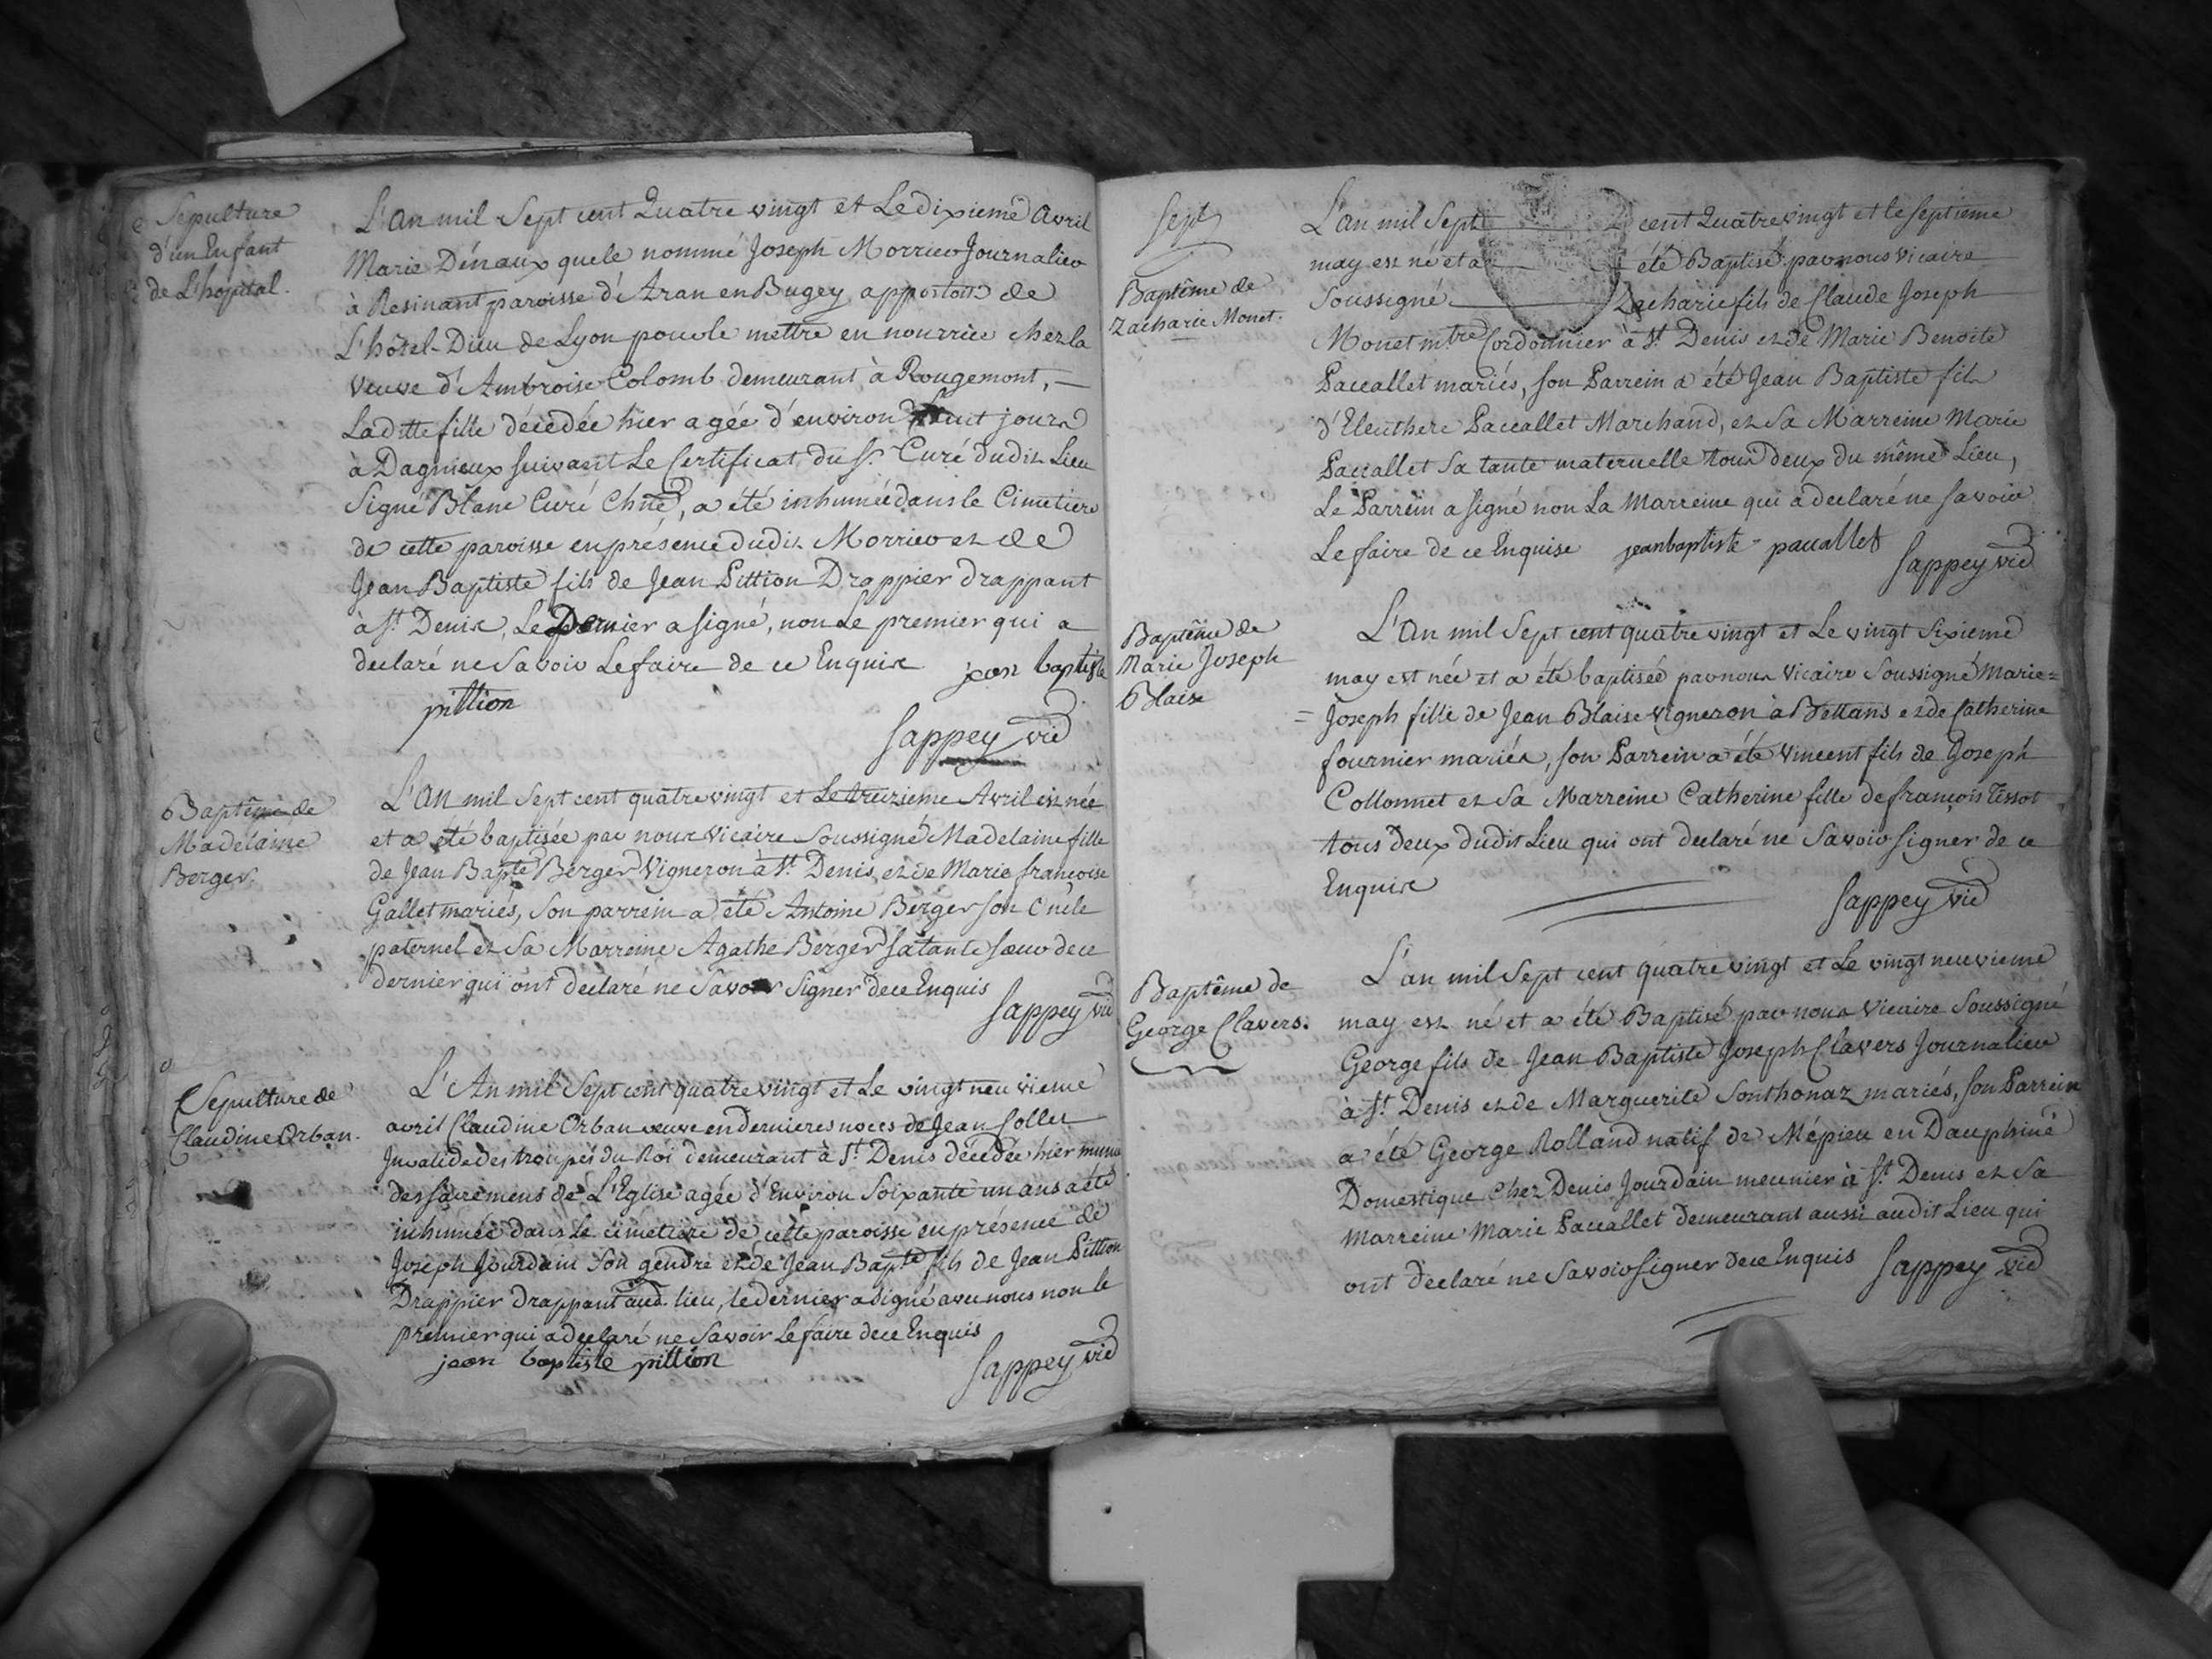 Sepulture
d'un Enfant
de L'hôpital.
L'An mil Sept cent Quatre vingt et Le dixieme avril
Marie Dénaux que le nommé Joseph Morrier Journalier
à Resinant paroisse d'Aran en Bugey apportoit de
L'hôtel-Dieu de Lyon pour le mettre en nourrice chez la
veuve d'Ambroise Colomb demeurant à Rougemont, —
Laditte fille décédée hier agée d'environ huit jours
à Dagnieux suivant Le Certificat du Sr. Curé dudit Lieu
Signé Blanc Curé Chne, a été inhumée dans le Cimetiere
de cette paroisse en présence dudit Morrier et de
Jean Baptiste fils de Jean Pittion Drappier drappant
à St. Denis, Le Dernier a signé, non Le premier qui a
declaré ne Savoir Le faire de ce Enquis jean baptiste
pittion
Sappey vic
Baptême de
Madelaine
Berger.
L'An mil Sept cent quatre vingt et Le treizieme Avril est née
et a été baptisée par nous vicaire Soussigné Madelaine fille
de Jean Bapte Berger Vigneron à St. Denis, et de Marie françoise
Gallet mariés, Son parrein a été Antoine Berger son Oncle
paternel et Sa Marreine Agathe Berger Sa tante Sœur de ce
dernier qui ont declaré ne Savoir Signer de ce Enquis
Sappey vic
Sepulture de
Claudine Orban.
L'An mil Sept cent quatre vingt et Le vingt neuvieme
avril Claudine Orban veuve en dernieres noces de Jean Collet
Invalide des troupes du Roi demeurant à St. Denis décédée hier munie
des sacremens de L'Eglise agée d'Environ Soixante un ans a été
inhumée dans Le cimetiere de cette paroisse en présence de
Joseph Jourdain Son gendre et de Jean Bapte fils de Jean Pittion
Drappier drappant aud. lieu, le dernier a signé avec nous non le
premier qui a declaré ne Savoir Le faire de ce Enquis
jean baptiste pittion Sappey vic
Sept
Baptême de
Zacharie Monet.
L'an mil Sept cent Quatre vingt et le septieme
may est né et a été Baptisé par nous vicaire
Soussigné Zacharie fils de Claude Joseph
Monet mtre Cordonnier à St. Denis et de Marie Benoite
Paccallet mariés, son Parrein a été Jean Baptiste fils
d'Eleuthere Paccallet Marchand, et Sa Marreine Marie
Paccallet Sa tante maternelle tous deux du même Lieu,
Le Parrein a signé non La Marreine qui a declaré ne Savoir
Le faire de ce Enquise jeanbaptiste paccallet
Sappey vic
Baptême de
Marie Joseph
Blaise
L'An mil Sept cent quatre vingt et Le vingt Sixieme
may est née et a été baptisée par nous Vicaire Soussigné Marie=
= Joseph fille de Jean Blaise vigneron à Bettans et de Catherine
fournier mariés, son Parrein a été vincent fils de Joseph
Collonnet et Sa Marreine Catherine fille de françois Tissot
tous deux dudit Lieu qui ont declaré ne Savoir signer de ce
Enquis
Sappey vic
Baptême de
George Clavers.
L'an mil Sept cent quatre vingt et Le vingt neuvieme
may est né et a été Baptisé par nous Vicaire Soussigné
George fils de Jean Baptiste Joseph Clavers Journalier
à St. Denis et de Marguerite Sonthonaz mariés, son Parrein
a été George Rolland natif de Mépieu en Dauphiné
Domestique Chez Denis Jourdain meunier à St. Denis et Sa
Marreine Marie Paccallet Demeurant aussi audit Lieu qui
ont declaré ne Savoir signer de ce Enquis Sappey vic